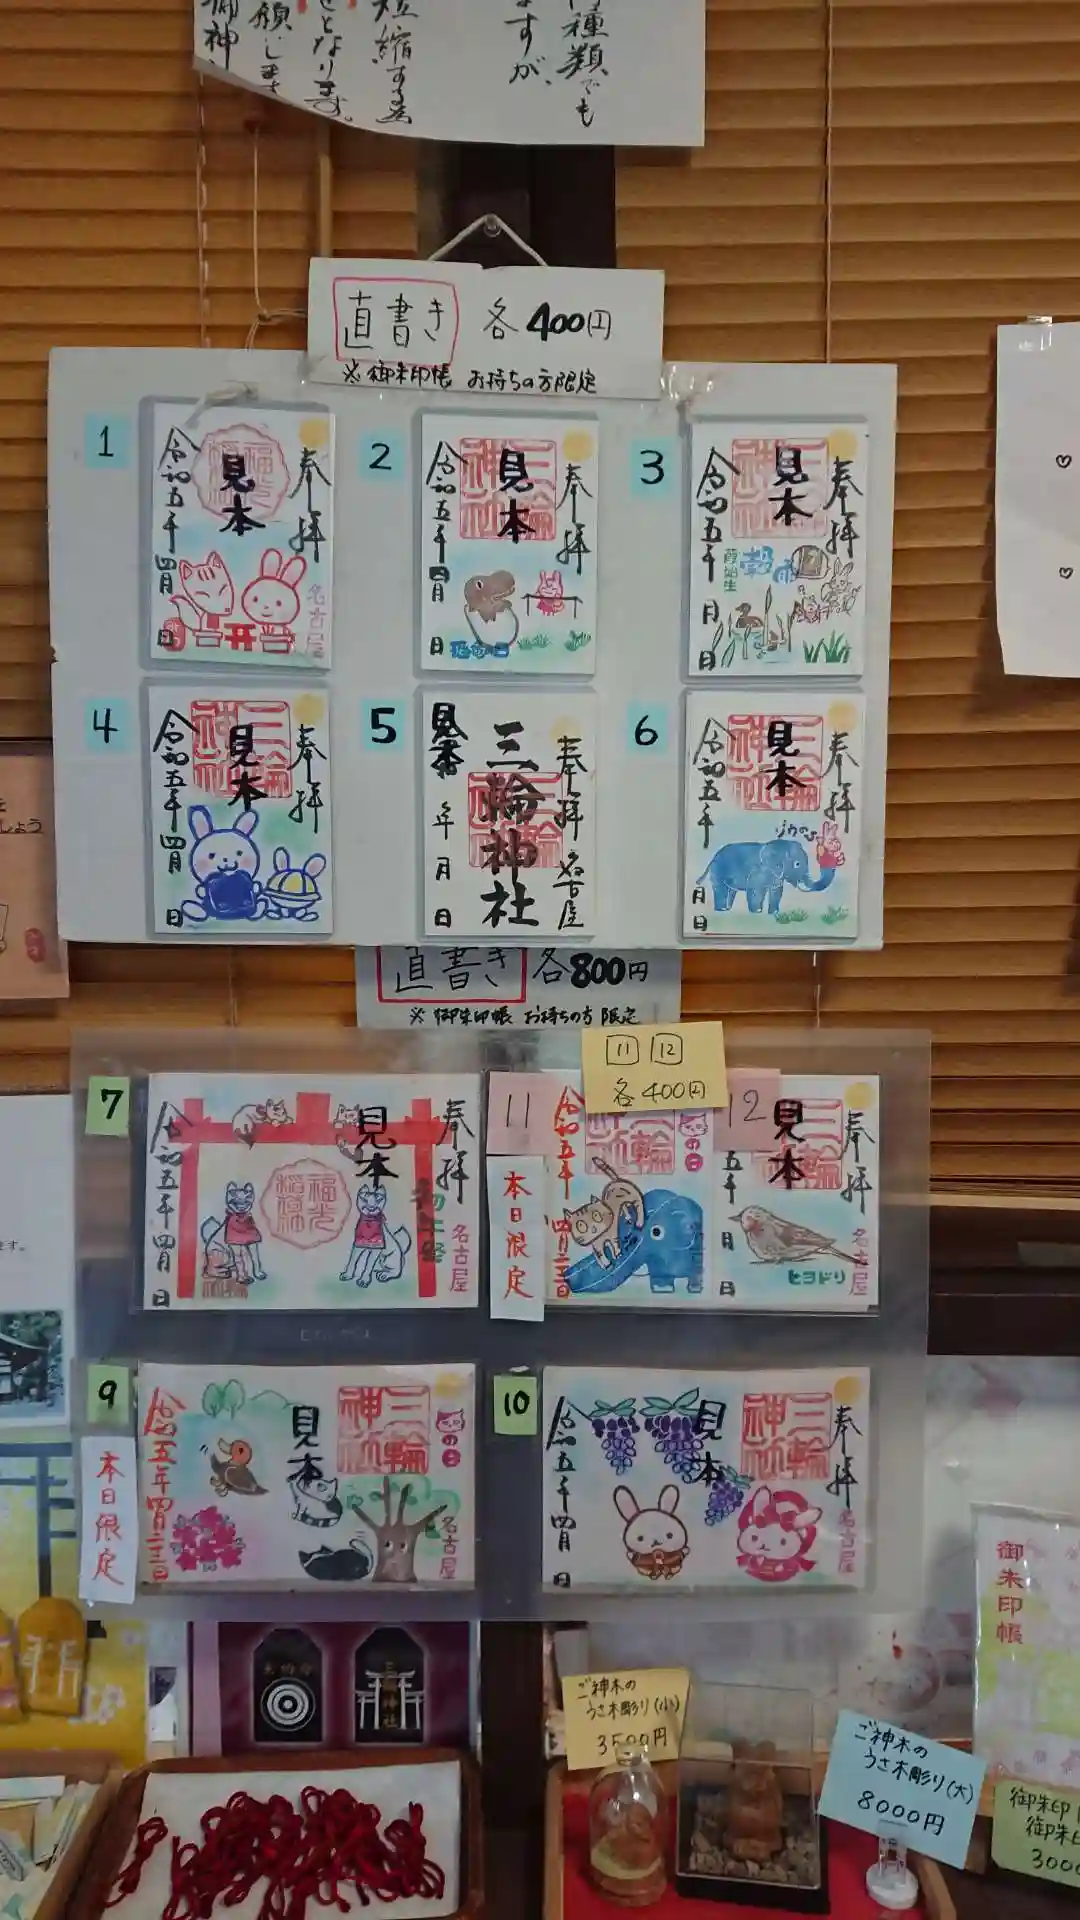 種類でも
ますが、
短縮する為
となります。
願いします
御神
直書き 各400円
※御朱印帳 お持ちの方限定
1
奉拝
見本
令和五年四月 日
名古屋
2
奉拝
見本
令和五年四月 日
3
奉拝
見本
令和五年 月 日
穀雨
葭始生
4
奉拝
見本
令和五年四月 日
5
奉拝 名古屋
三輪神社
見本
年 月 日
6
奉拝
見本
令和五年 月 日
直書き 各800円
※御朱印帳 お持ちの方限定
11 12
各400円
7
奉拝
見本
福光稲荷
名古屋
令和五年四月 日
11
本日限定
の日
令和五年四月二十二日
12
奉拝
見本
名古屋
ヒヨドリ
五年 月 日
9
本日限定
三輪神社
の日
見本
名古屋
令和五年四月二十二日
10
奉拝
三輪神社
見本
名古屋
令和五年四月 日
御朱印帳
三輪神社
ご神木の
うさ木彫り(小)
3500円
ご神木の
うさ木彫り(大)
8000円
御朱印
御朱
300
しょう
ます。